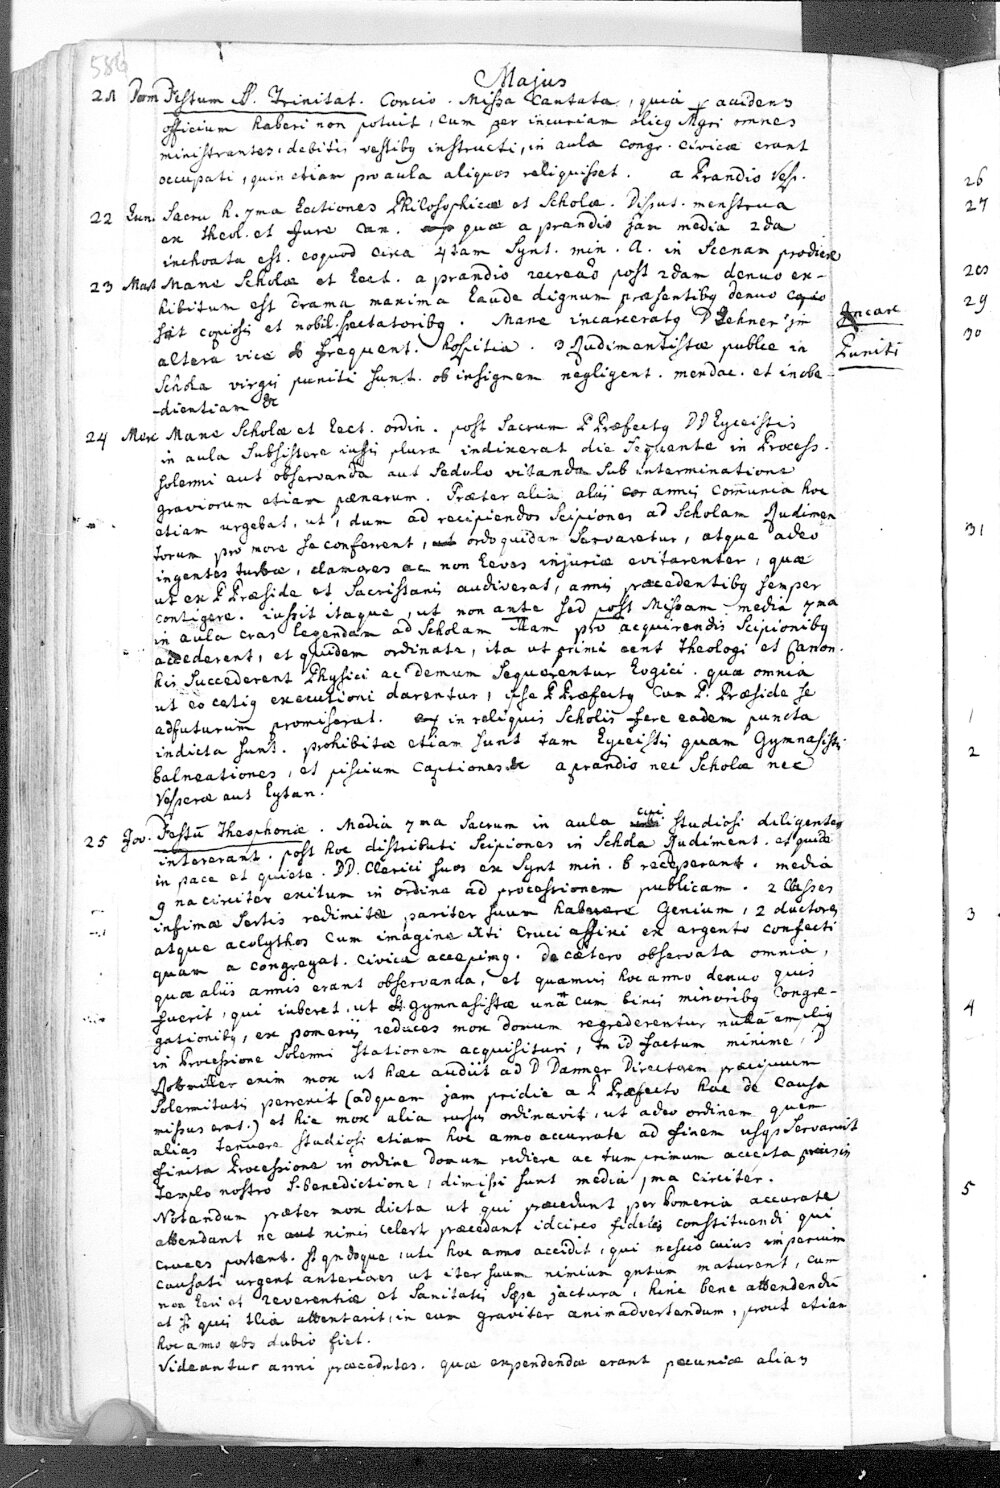 586
Majus
21 Dom Festum SS. Trinitat. Concio. Missa cantata, quia per accidens
officium haberi non potuit, cum per incuriam alicq Mgri omnes
ministrantes, debitis vestibq instructi, in aula congr. civicæ erant
occupati, quin etiam pro aula aliquos reliquisset. a Prandio Vesp.
22 Lun. Sacru h. 7ma Lectiones Philosophicæ et Scholæ. Disput. menstrua
ex Theol. et Jure Can. quæ a prandio jam media 2da
inchoata est. eoquod circa 4tam Synt. min. A. in Scenam prodiere
23 Mart Mane Scholæ et Lect. a prandio recreao post 2dam denuo ex-
hibitum est Drama maxima Laude dignum præsentibq denuo
copiosis et nobil. spectatoribq. Mane incarceratq D Lehner in
altera vice ob frequent. hospitia. 3 Rudimentistæ publce in
Schola virgis puniti sunt. ob insignem negligent. mendac. et inobe-
dientiam &c
Incarc
Puniti
24 Merc Mane Scholæ et Lect. ordin. post Sacrum P Præfectq DD Lyceistis
in aula subsistere iussis plura indixerat die sequente in Process.
solemni aut observanda aut sedulo vitanda sub interminatione
graviorum etiam pœnarum. Præter alia aliis annis communia hoc
etiam urgebat, ut, dum ad recipiendos Scipiones ad Scholam Rudimen
torum pro more se conferrent, ordo quidan servaretur, atque adeo
ingentes turbæ, clamores ac non leves injuriæ evitarenter, quæ
ut ex P Præside et Sacristanis audiverat, annis præcedentibq semper
contigere. iussit itaque, ut non ante sed post Missam media 7ma
in aula cras legendam ad Scholam illam pro acquirendis Scipionibq
accederent, et quidem ordinate, ita ut primi eent Theologi et Canon.
his succederent Physici ac demum sequerentur Logici. quæ omnia
ut eo certiq executioni darentur, ipse P Præfectq cum P. Præside se
adfuturum promiserat. in reliquis Scholis fere eadem puncta
indicta sunt. prohibitæ etiam sunt tam Lyceistis quam Gymnasistis
balneationes, et piscium captiones &c a prandio nec Scholæ nec
Vesperæ aut Lytan.
25 Jov. Festu Theophoriæ. Media 7ma Sacrum in aula cui studiosi diligenter
intererant. post hoc distributi Scipiones in Schola Rudiment. et quide
in pace et quiete. DD. Clerici suos ex Synt min. B receperant. media
9na circiter exitum in ordine ad processionem publicam. 2 Classes
infimæ sertis redimitæ pariter suum habuere Genium, 2 ductores
atque acolythos cum imagine Xti Cruci affixi ex argento confecti
quam a congregat. civica accepimq. De cætero observata omnia,
quæ aliis annis erant observanda, et quamvis hoc anno denuo quis
fuerit, qui iuberet, ut Gymnasistæ unâ cum binis minoribq Congre-
gationibq, ex pomeriis reduces mox domum regrederentur nulla ampliq
in Processione solemni stationem acquisituri, tn id factum minime. D
enim mox ut hæc audiit ad D Danner Directorem præcipuum
solemnitatis perrexit (ad quem jam pridie a P Præfecto hac de causa
missus erat.) et hic mox alia rursus ordinavit, ut adeo ordinem quem
alias tenuere studiosi etiam hoc anno accurrate ad finem usqs servarint
finita Processione in ordine domum rediere ac tum primum accepta prius in
templo nostro S. benedictione, dimissi sunt media 1ma circiter.
Notandum præter mox dicta ut qui præcedunt per Pomeria accurate
attendant ne nimis celerr præcedant idcirco fideles constituendi qui
cruces portent. St qndoque, uti hoc anno accidit, qui nescio cuius imperium
causati urgent anteriores ut iter suum nimium qntum maturent, cum
non levi et reverentiæ et sanitatis spe jactura, hinc bene attendendu
et si quis talia attentarit, in eum graviter animadvertendum, prout etiam
hoc anno abs dubio fiet.
Videantur anni præcedntes. quæ expendendæ erant pecuniæ alias
26
27
28
29
30
31
1
2
3
4
5